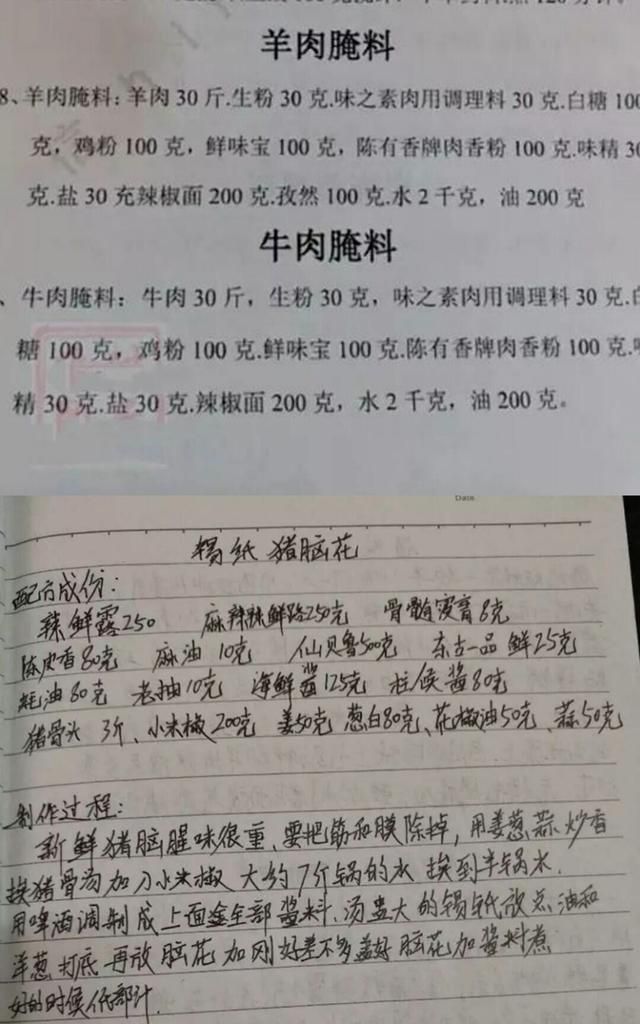 羊肉腌料
8、羊肉腌料：羊肉 30 斤.生粉 30 克.味之素肉用调理料 30 克.白糖 100
克，鸡粉 100 克，鲜味宝 100 克，陈有香牌肉香粉 100 克.味精 30
克.盐 30 充辣椒面 200 克.孜然 100 克.水 2 千克，油 200 克
牛肉腌料
、牛肉腌料：牛肉 30 斤，生粉 30 克，味之素肉用调理料 30 克.白
糖 100 克，鸡粉 100 克.鲜味宝 100 克.陈有香牌肉香粉 100 克.
精 30 克.盐 30 克.辣椒面 200 克，水 2 千克，油 200 克。
Date
锡纸 猪脑花
配方成份：
辣鲜露250 麻辣鲜路250克 骨髓浸膏8克
陈皮香80克 麻油 10克 仙贝鲁500克 东古一品鲜25克
蚝油80克 老抽10克 海鲜酱125克 柱侯酱80克
猪骨头 3斤、小米椒200克 姜50克 葱白80克、花椒油50克、蒜50克
制作过程：
新鲜猪脑腥味很重、要把筋和膜除掉，用姜葱蒜炒香
挨猪骨汤加入小米椒 大约7斤锅的水 挨到半锅水.
用啤酒调制成上面全部酱料、汤 大的锡纸放点油和
洋葱打底 再放脑花 加刚好差不多盖好脑花加酱料煮
好的时候